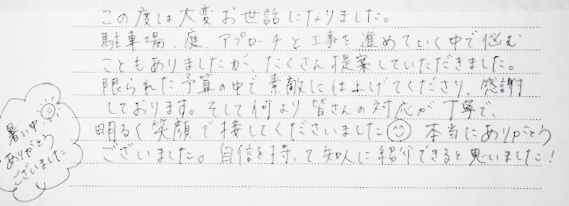 この度は大変お世話になりました。
駐車場、庭、アプローチと工事を進めていく中で悩む
こともありましたが、たくさん提案していただきました。
限られた予算の中で素敵に仕上げてくださり、感謝
しております。そして何より皆さんの対応が丁寧で、
明るく笑顔で接してくださいました 本当にありがとう
ございました。自信を持って知人に紹介できると思いました！
暑い中
ありがとう
ございました